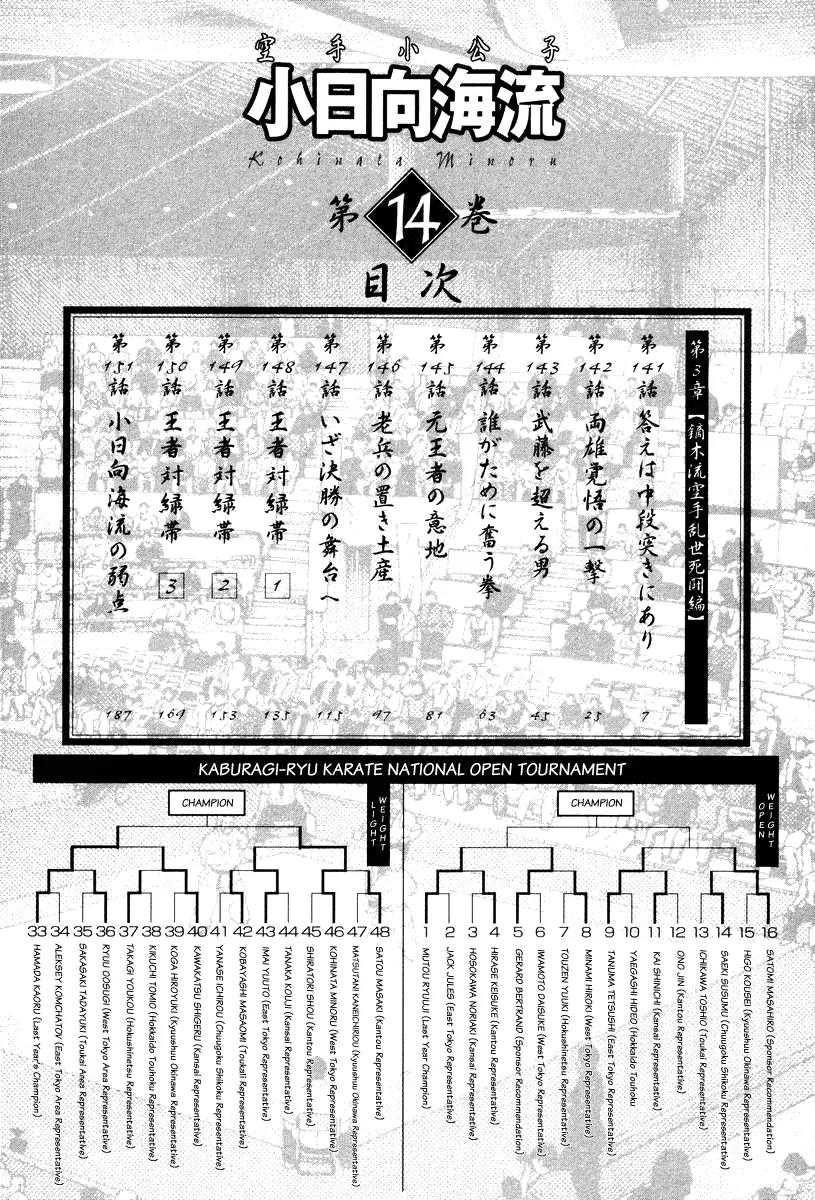 空手小公子
小日向海流
Kohinata Minoru
第14巻
目次
第3章【鏑木流空手乱世死闘編】
第141話 答えは中段突きにあり 7
第142話 両雄覚悟の一撃 25
第143話 武藤を超える男 45
第144話 誰がために奮う拳 63
第145話 元王者の意地 81
第146話 老兵の置き土産 97
第147話 いざ決勝の舞台へ 115
第148話 王者対緑帯 1 135
第149話 王者対緑帯 2 153
第150話 王者対緑帯 3 169
第151話 小日向海流の弱点 187
KABURAGI-RYU KARATE NATIONAL OPEN TOURNAMENT
CHAMPION
LIGHT WEIGHT
33 HAMADA KAORU (Last Year's Champion)
34 ALEKSEY KOMCHATOV (East Tokyo Area Representative)
35 SAKASAKI TADAYUKI (Toukai Area Representative)
36 RYUU OOSUGI (West Tokyo Area Representative)
37 TAKAGI YOUKOU (Hokushinetsu Representative)
38 KIKUCHI TOMIO (Hokkaido Touhoku Representative)
39 KOGA HIROYUKI (Kyuushuu Okinawa Representative)
40 KAWAKATSU SHIGERU (Kansai Representative)
41 YANASE ICHIROU (Chuugoku Shikoku Representative)
42 KOBAYASHI MASAOMI (Toukai Representative)
43 IMAI YUUTO (East Tokyo Representative)
44 TANAKA KOUJI (Kansai Representative)
45 SHIRATORI SHOU (Kantou Representative)
46 KOHINATA MINORU (West Tokyo Representative)
47 MATSUTANI KANEICHIRIOU (Kyuushuu Okinawa Representative)
48 SATOU MASAKI (Kantou Representative)
CHAMPION
OPEN WEIGHT
1 MUTOU RYUUJI (Last Year Champion)
2 JACK JULES (East Tokyo Representative)
3 HOSOKAWA NORIAKI (Kansai Representative)
4 HIRASE KEISUKE (Kantou Representative)
5 GERARD BERTRAND (Sponsor Recommendation)
6 IWAMOTO DAISUKE (West Tokyo Representative)
7 TOUZEN YUUKI (Hokushinetsu Representative)
8 MINAMI HIROKI (West Tokyo Representative)
9 TANUMA TETSUSHI (East Tokyo Representative)
10 YAEGASHI HIDEO (Hokkaido Touhoku
11 KAI SHINICHI (Kansai Representative)
12 ONO JIN (Kantou Representative)
13 ICHIKAWA TOSHIO (Toukai Representative)
14 SAEKI SUSUMU (Chuugoku Shikoku Representative)
15 HIGO KOUSEI (Kyuushuu Okinawa Representative)
16 SATOMI MASAHIRO (Sponsor Recommendation)